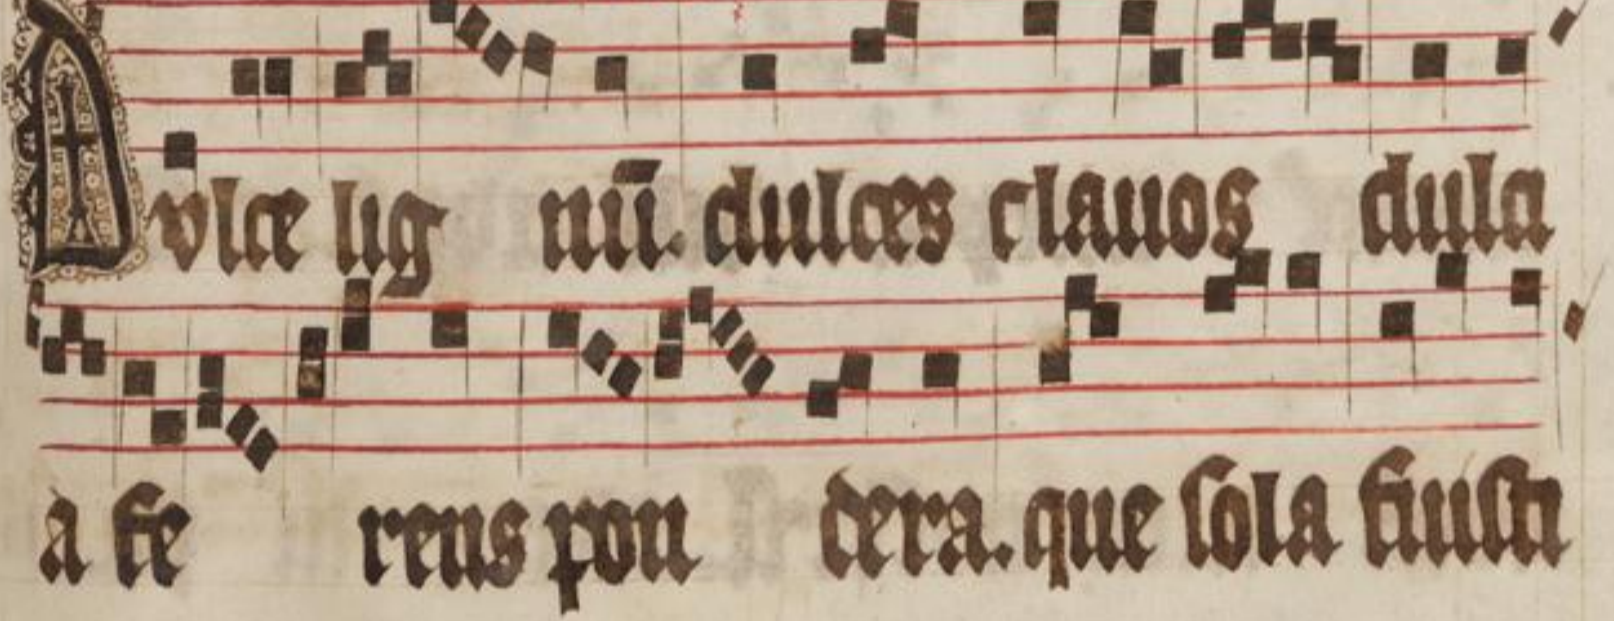 Dulce lignū. dulces clauos dulci
a ferens pondera. que sola fuisti